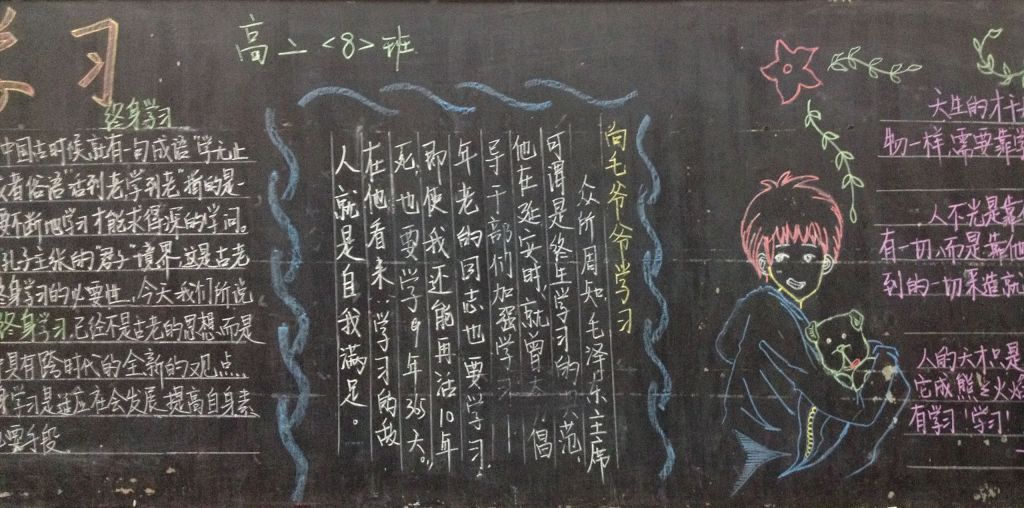 学习
高二<8>班
终身学习
中国古时候就有一句成语"学无止
或者俗语"活到老学到老"指的是
要不断地学习才能求得渊的学问。
孔子主张的"君子"境界.这是古老
终身学习的必要性,今天我们所说
终身学习.已经不是古老的思想,而是
具有跨时代的全新的观点.
学习是适应社会发展.提高自身素
要手段
向毛爷爷学习
众所周知,毛泽东主席
可谓是终生学习的 范,
他在延安时,就曾 倡
导干部们加强学习
年老的同志也要学习.
即使我还能再活10年
死,也要学9年365天。"
在他看来,学习的敌
人就是自我满足。
天生的才干
物一样,需要靠学
人不光是靠他
有一切,而是靠他
到的一切来造就
人的天才只是
它成熊熊火焰
有学习!学习!